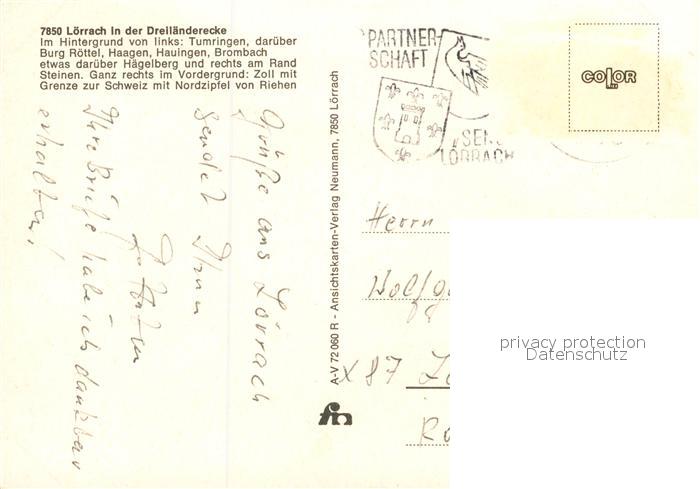 7850 Lörrach In der Dreiländerecke
Im Hintergrund von links: Tumringen, darüber
Burg Röttel, Haagen, Hauingen, Brombach
etwas darüber Hägelberg und rechts am Rand
Steinen. Ganz rechts im Vordergrund: Zoll mit
Grenze zur Schweiz mit Nordzipfel von Riehen
PARTNER-
SCHAFT
LÖRRACH
COLOR
Grüße aus Lörrach
sendet Ihnen
Ihre Briefe habe ich dankbar
erhalten!
A-V 72 060 R - Ansichtskarten-Verlag Neumann, 7850 Lörrach
Herrn
X 87
privacy protection
Datenschutz